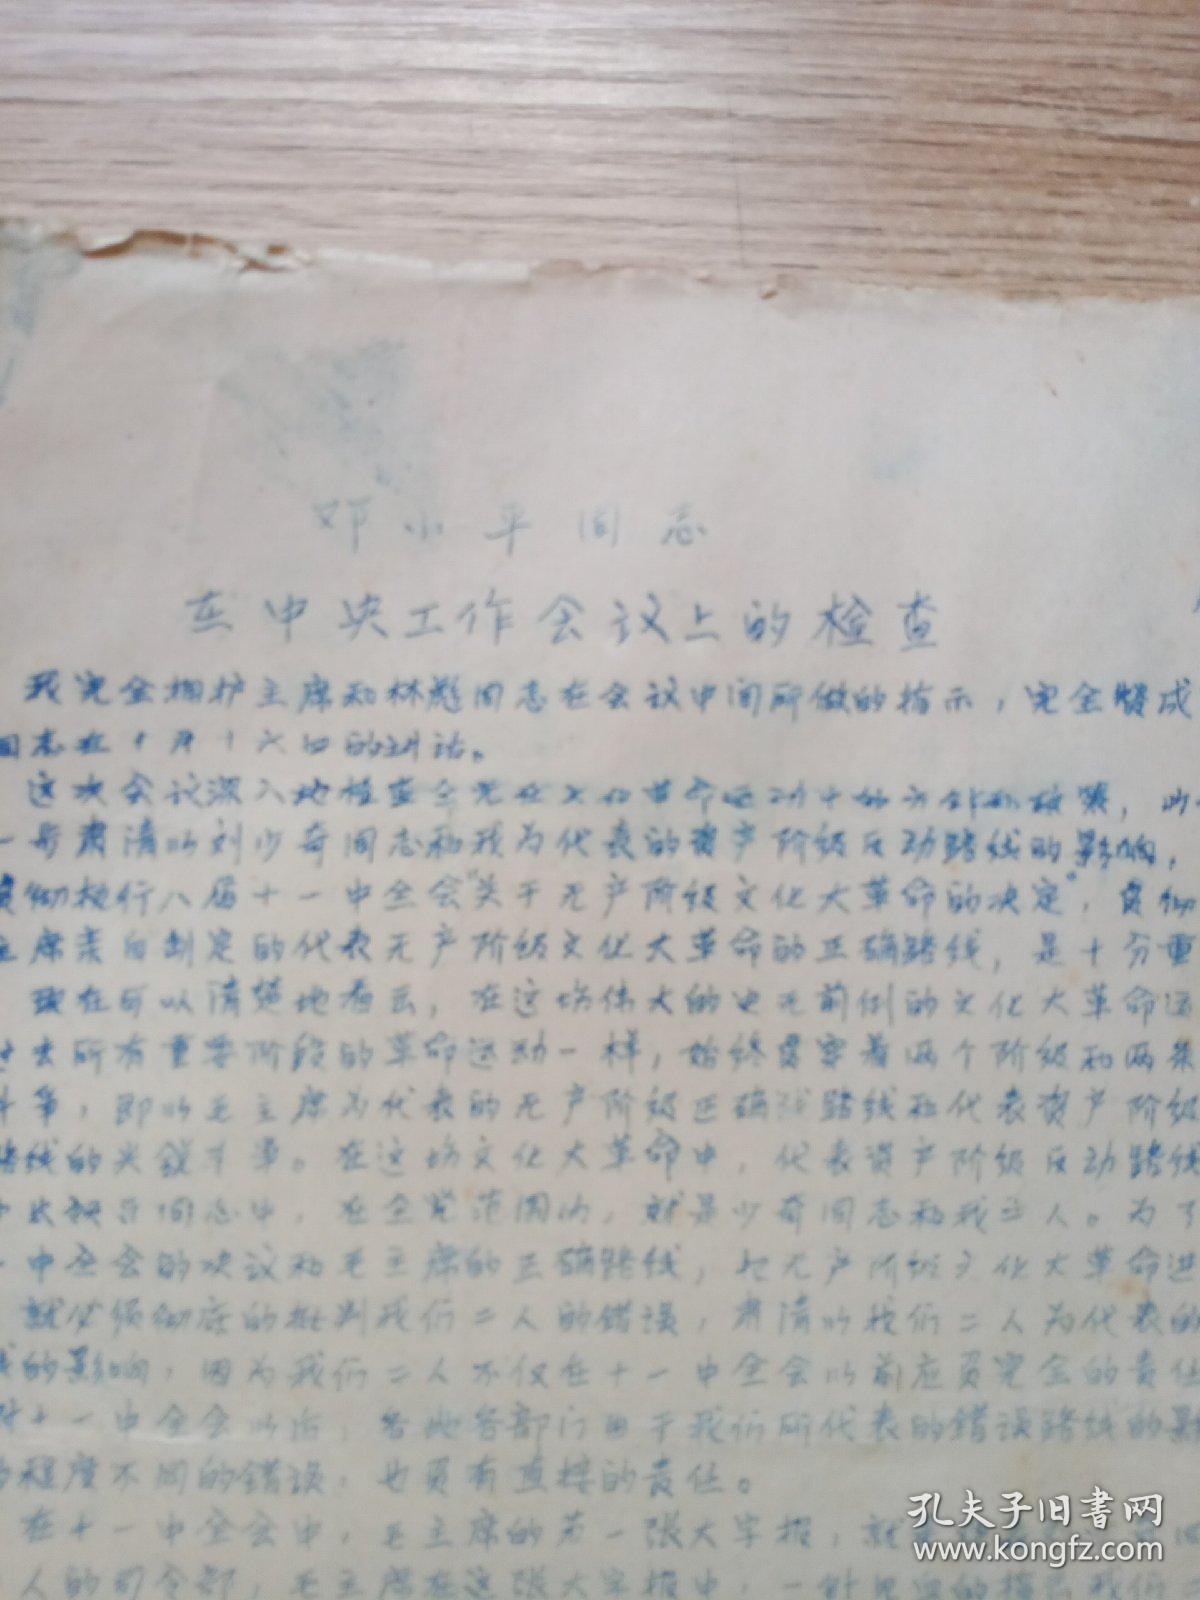 邓小平同志
在中央工作会议上的检查
我完全拥护主席和林彪同志在会议中间所做的指示，完全赞成
同志在十月十六日的讲话。
这次会议深入地检查全党在文化革命运动中的
一步肃清以刘少奇同志和我为代表的资产阶级反动路线的影响，
贯彻执行八届十一中全会“关于无产阶级文化大革命的决定”，贯彻
主席亲自制定的代表无产阶级文化大革命的正确路线，是十分重
现在可以清楚地看出，在这场伟大的史无前例的文化大革命运
过去所有重要阶段的革命运动一样，始终贯穿着两个阶级和两条
斗争，即以毛主席为代表的无产阶级正确路线和代表资产阶级
路线的尖锐斗争。在这场文化大革命中，代表资产阶级反动路线
同志中，在全党范围内，就是少奇同志和我二人。为了
一中全会的决议和毛主席的正确路线，把无产阶级文化大革命进
就必须彻底的批判我们二人的错误，肃清以我们二人为代表的
线的影响，因为我们二人不仅在十一中全会以前应负完全的责任
十一中全会以后，各地各部门由于我们所代表的错误路线的影
程度不同的错误，也负有直接的责任。
在十一中全会中，毛主席的第一张大字报，就
人的司令部，毛主席在这张大字报中，一针见血的指出我们二
孔夫子旧书网
www.kongfz.com